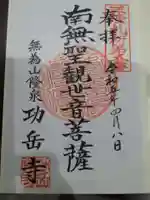 奉拝
令和五年四月八日
南無聖観世音菩薩
無為山隆泉
功岳寺